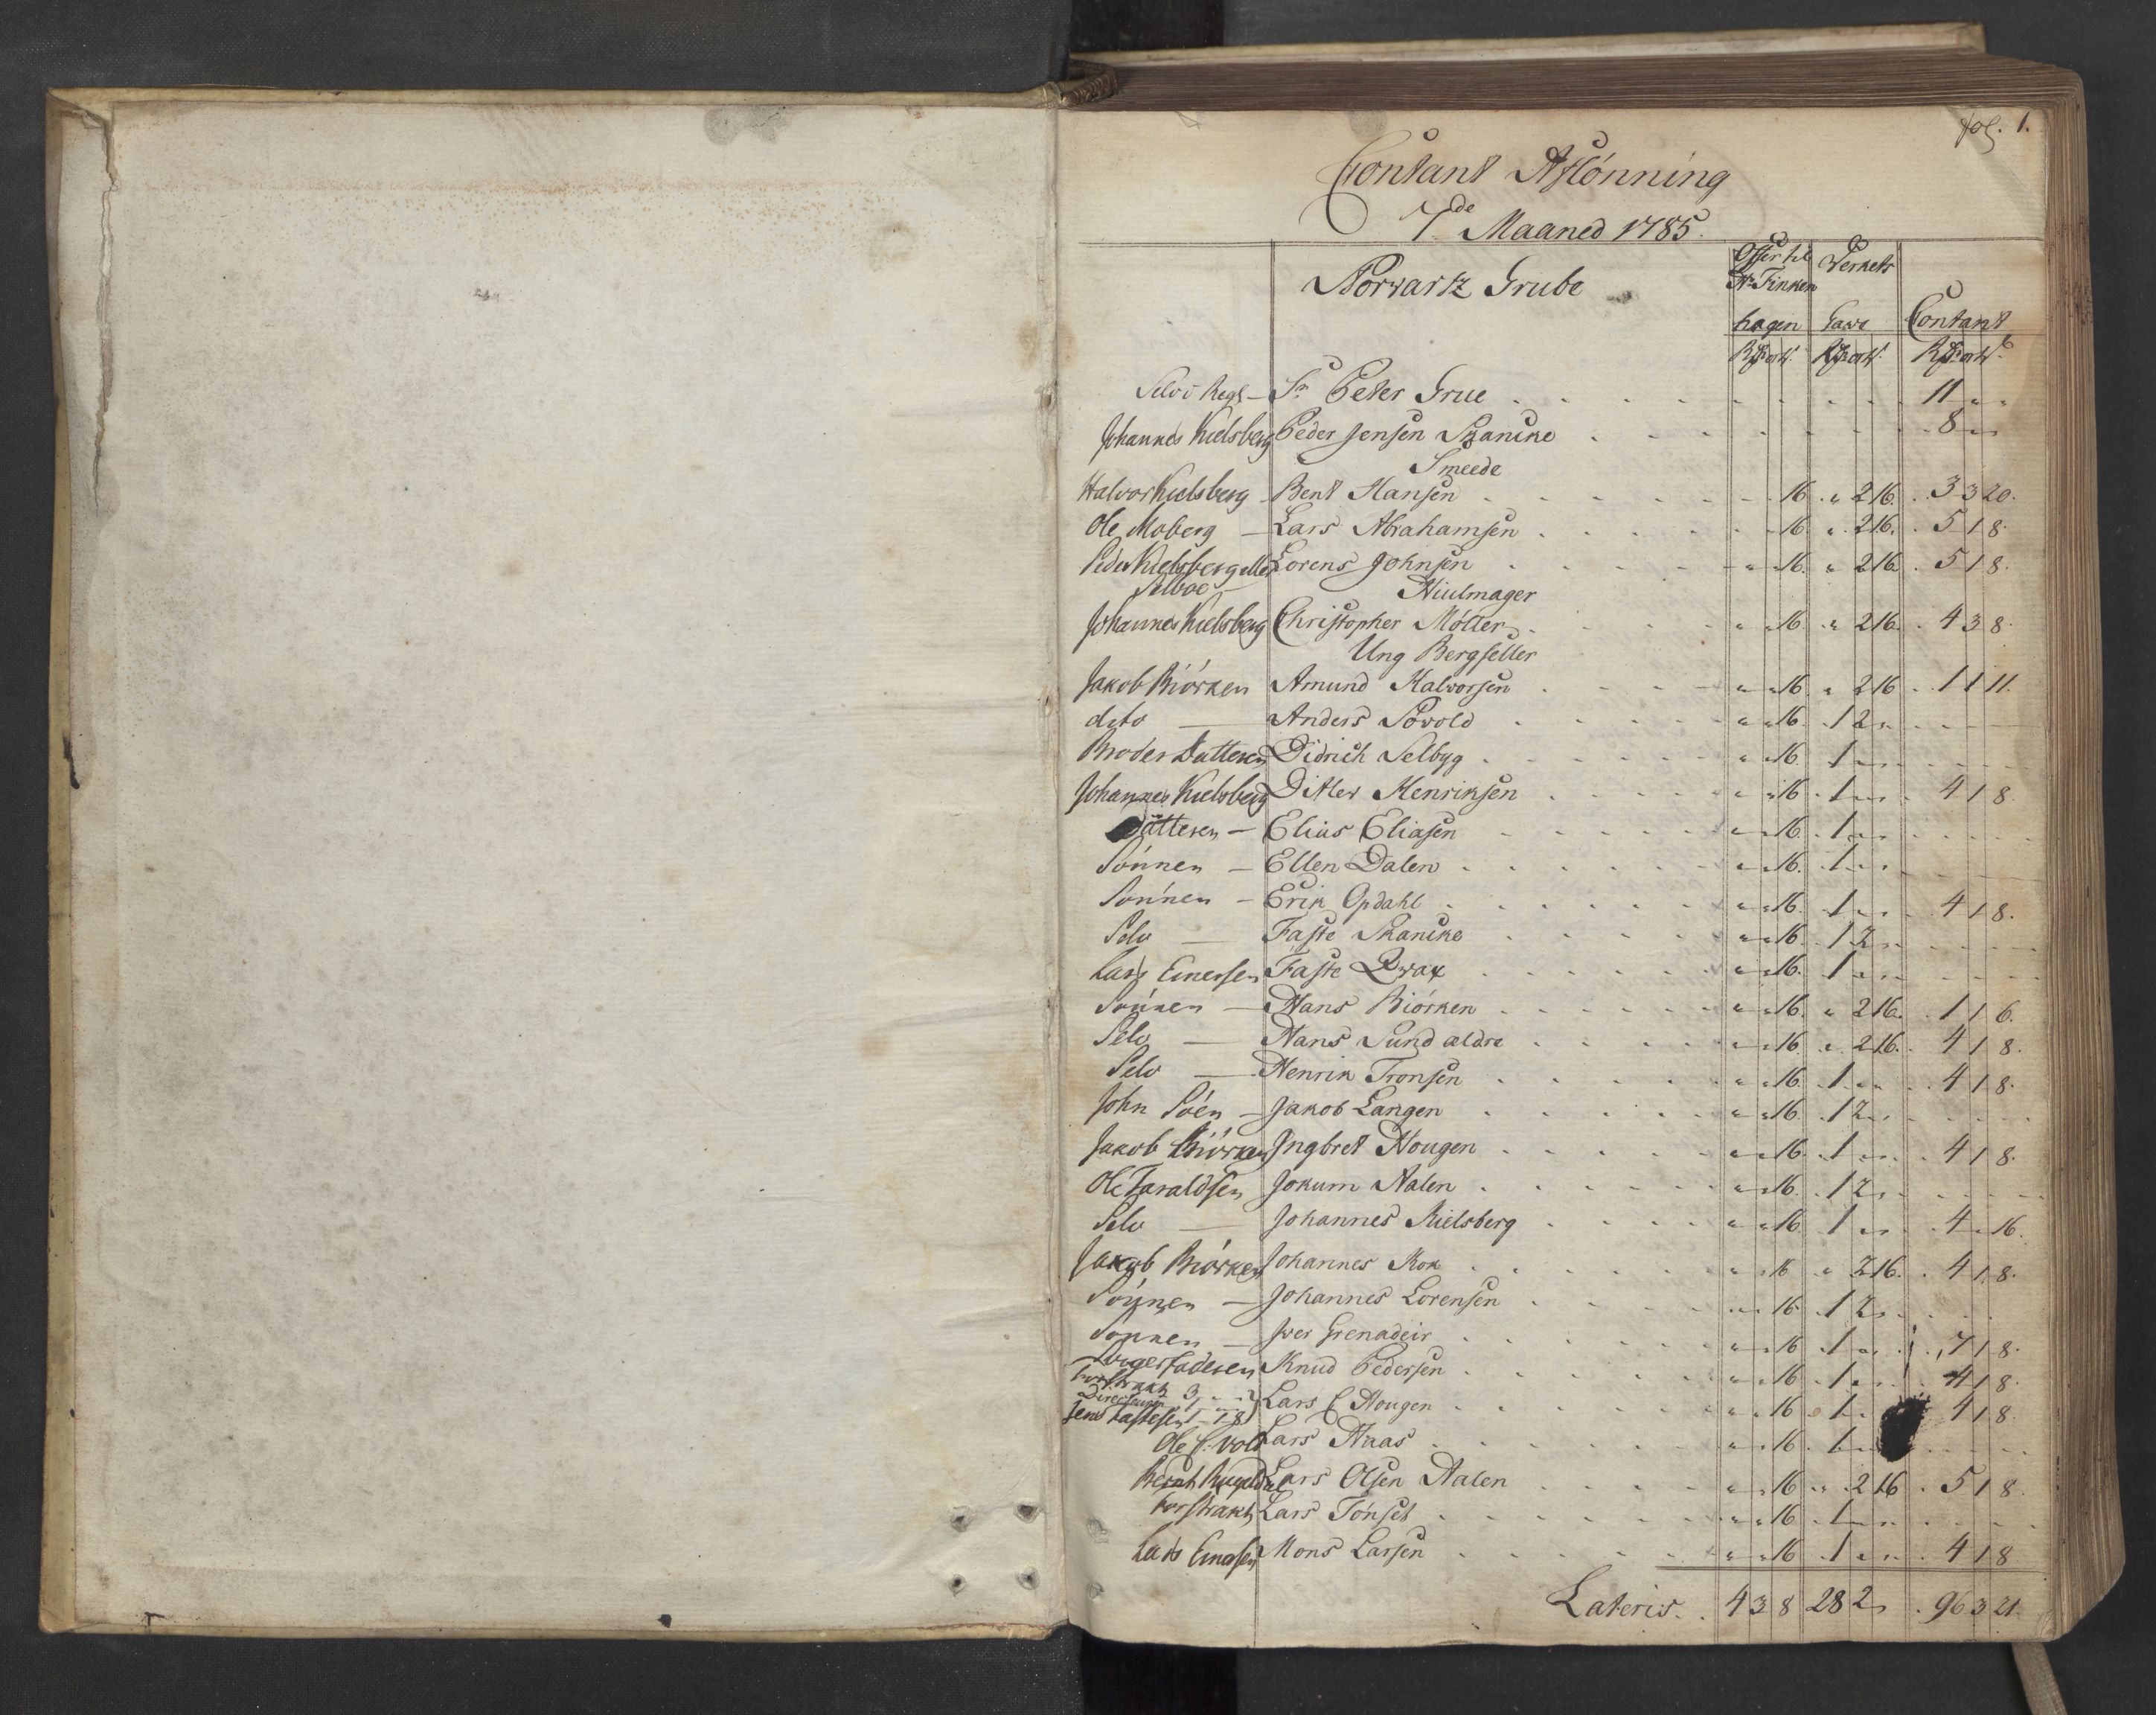 fol. 1.
Contant Aflónning
7de Maaned 1785.
Norvartz Grube
Offer til Hr Finkenhagen
Verkets Gave
Contant
Selv Sr Peter Grue 11 " "
Johannes Kielsberg Peder Jensen Skancke 8 " "
Smeede
Halvor Kielsberg Bent Hansen 16 " 2 16 3 3 20
Ole Moberg Lars Abrahamsen 16 " 2 16 5 1 8
Peder Kielsberg eller Selboe Lorens Johnsen " " 16 " 2 16 5 1 8
Hiulmager
Johannes Kielsberg Christopher Móller " " 16 " 2 16 4 3 8
Ung Bergseller
Jakob Biórken Amund Halvorsen " " 16 " 2 16 1 1 11
dito Anders Povold " " 16 1 2 "
Broder Datteren Didrich Selbyg " " 16 1 " "
Johannes Kielsberg Ditlev Henriksen " " 16 1 " " 4 1 8
Datteren Elias Eliasen " " 16 1 " "
Sónnen Ellen Dalen " " 16 1 " "
Sónnen Erik Opdahl " " 16 1 " " 4 1 8
Selv Faste Skancke " " 16 1 2 "
Lars Einersen Faste Qvax " " 16 1 " "
Sónnen Hans Biórken " " 16 " 2 16 1 1 6
Selv Hans Sund ældre " " 16 " 2 16 4 1 8
Selv Henrik Tronsen " " 16 1 " " 4 1 8
John Sóen Jakob Langen " " 16 1 2 "
Jakob Biórken Ingbret Hougen " " 16 1 " " 4 1 8
Ole Taraldsen Jokum Aalen " " 16 1 2 "
Selv Johannes Kielsberg " " 16 1 " " 4 " 16
Jakob Biórken Johannes Kok " " 16 " 2 16 4 1 8
Sónnen Johannes Lorensen " " 16 1 2 "
Sónnen Iver Grenadeir " " 16 1 " " 7 1 8
Svigerfaderen Knud Pedersen " " 16 1 " " 4 1 8
Forstrakt
Directeuren 3
Jens Fastesen 1 1 8 Lars C Hougen " " 16 1 " 4 1 8
Ole C. Vold Lars Aaas " " 16 1 "
Bernt Lars Olsen Aalen " " 16 " 2 16 5 1 8
Forstrakt Lars Tónset " " 16 1 " "
Lars Einersen Mons Larsen " " 16 1 " " 4 1 8
Lateris 4 3 8 28 2 " 96 3 21